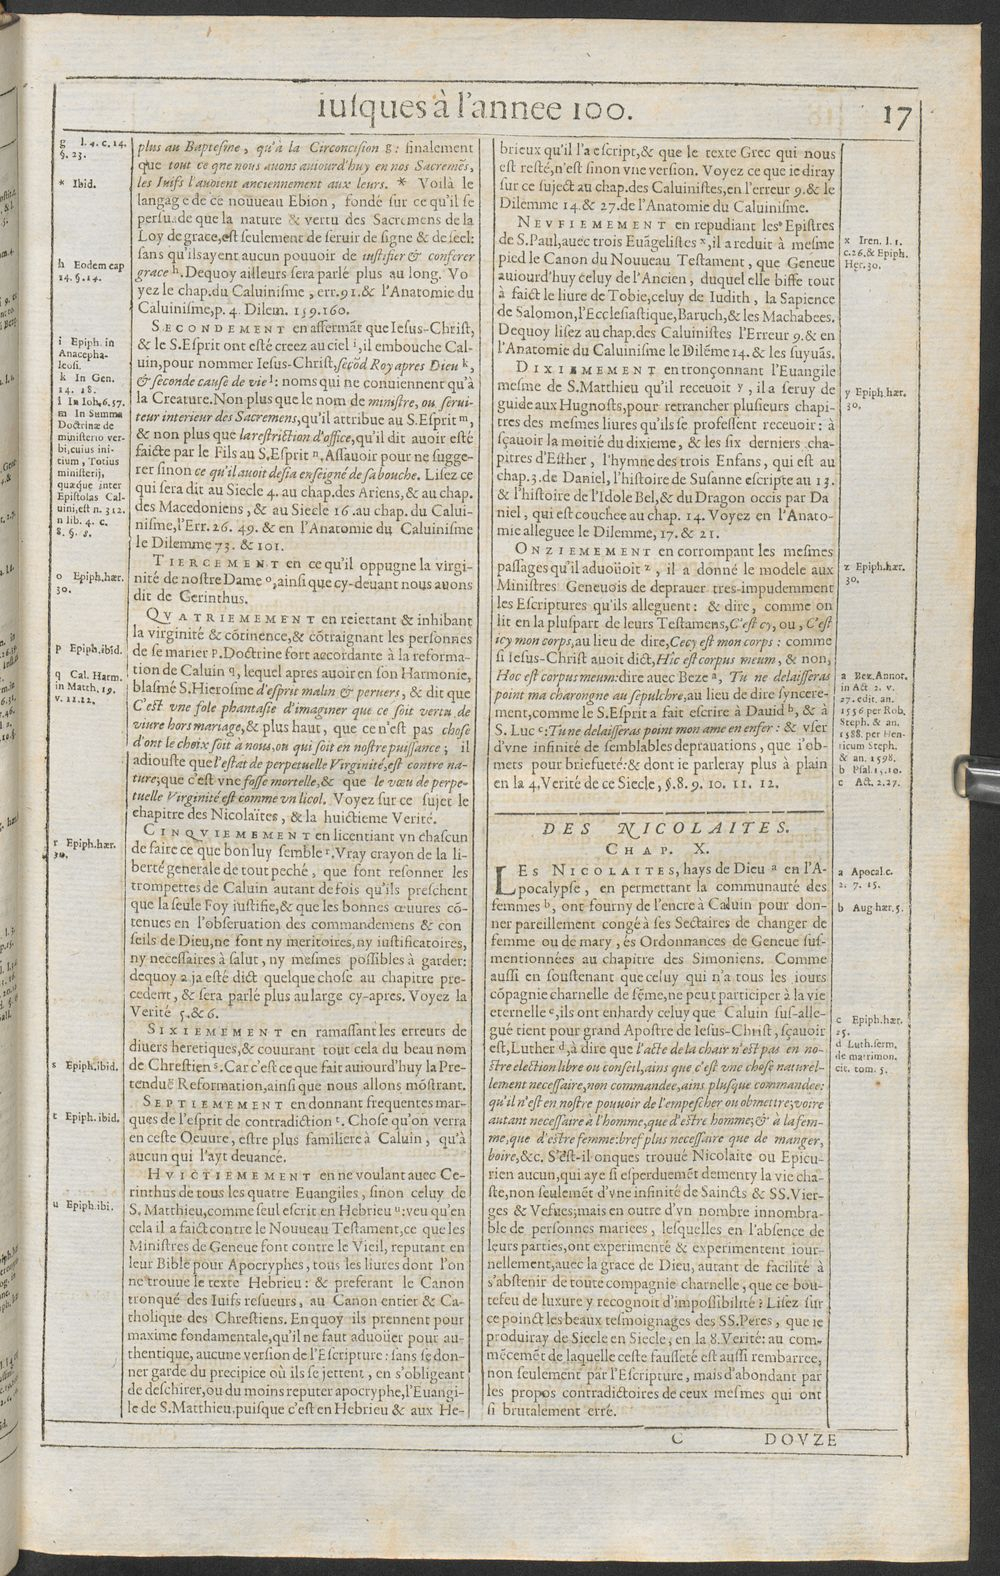 iusques à l'annee 100.
17
g l. 4. c. 14.
§. 23.
* Ibid.
h Eodem cap
14. §. 14.
i Epiph. in
Anacepha-
leosi.
k In Gen.
14. 18.
l In Ioh. 6. 57.
m In Summa
Doctrinæ de
ministerio ver-
bi, cuius ini-
tium, Totius
ministerij,
quæque inter
Epistolas Cal-
uini, est n. 312.
n lib. 4. c.
8. §. 8.
o Epiph. hær.
30.
p Epiph. ibid.
q Cal. Harm.
in Matth. 19.
v. 11.12.
r Epiph. hær.
30.
s Epiph. ibid.
t Epiph. ibid.
u Epiph. ibi.
plus au Baptesme, qu'à la Circoncision g: finalement
que tout ce que nous auons auiourd'huy en nos Sacremẽs,
les Iuifs l'auoient anciennement aux leurs. * Voilà le
langage de ce nouueau Ebion, fondé sur ce qu'il se
persuade que la nature & vertu des Sacremens de la
Loy de grace, est seulement de seruir de signe & de seel:
sans qu'ils ayent aucun pouuoir de iustifier & conferer
grace h. Dequoy ailleurs sera parlé plus au long. Vo
yez le chap. du Caluinisme, err. 91. & l'Anatomie du
Caluinisme, p. 4. Dilem. 159. 160.
SECONDEMENT en assermãt que Iesus-Christ,
& le S. Esprit ont esté creez au ciel i, il embouche Cal-
uin, pour nommer Iesus-Christ, secõd Roy apres Dieu k,
& seconde cause de vie l: noms qui ne conuiennent qu'à
la Creature. Non plus que le nom de ministre, ou serui-
teur interieur des Sacremens, qu'il attribue au S. Esprit m,
& non plus que la restriction d'office, qu'il dit auoir esté
faicte par le Fils au S. Esprit n, Assauoir pour ne sugge-
rer sinon ce qu'il auoit desia enseigné de sa bouche. Lisez ce
qui sera dit au Siecle 4. au chap. des Ariens, & au chap.
des Macedoniens, & au Siecle 16. au chap. du Calui-
nisme, l'Err. 26. 49. & en l'Anatomie du Caluinisme
le Dilemme 73. & 101.
TIERCEMENT en ce qu'il oppugne la virgi-
nité de nostre Dame o, ainsi que cy-deuant nous auons
dit de Cerinthus.
QVATRIEMEMENT en reiettant & inhibant
la virginité & cõtinence, & cõtraignant les personnes
de se marier p. Doctrine fort accordante à la reforma-
tion de Caluin q, lequel apres auoir en son Harmonie,
blasmé S. Hierosme d'esprit malin & peruers, & dit que
C'est vne fole phantasie d'imaginer que ce soit vertu de
viure hors mariage, & plus haut, que ce n'est pas chose
d'ont le choix soit à nous, ou qui soit en nostre puissance; il
adiouste que l'estat de perpetuelle Virginité, est contre na-
ture; que c'est vne fosse mortelle, & que le vœu de perpe-
tuelle Virginité est comme vn licol. Voyez sur ce sujet le
chapitre des Nicolaïtes, & la huictieme Verité.
CINQVIEMEMENT en licentiant vn chascun
de faire ce que bon luy semble r. Vray crayon de la li-
berté generale de tout peché, que font resonner les
trompettes de Caluin autant de fois qu'ils preschent
que la seule Foy iustifie, & que les bonnes œuures cõ-
tenues en l'obseruation des commandemens & con
seils de Dieu, ne font ny meritoires, ny iustificatoires,
ny necessaires à salut, ny mesmes possibles à garder:
dequoy a ja esté dict quelque chose au chapitre pre-
cedent, & sera parlé plus au large cy-apres. Voyez la
Verité 5. & 6.
SIXIEMEMENT en ramassant les erreurs de
diuers heretiques, & couurant tout cela du beau nom
de Chrestien s. Car c'est ce que fait auiourd'huy la Pre-
tenduë Reformation, ainsi que nous allons mõstrant.
SEPTIEMEMENT en donnant frequentes mar-
ques de l'esprit de contradiction t. Chose qu'on verra
en ceste Oeuure, estre plus familiere à Caluin, qu'à
aucun qui l'ayt deuancé.
HVICTIEMEMENT en ne voulant auec Ce-
rinthus de tous les quatre Euangiles, sinon celuy de
S. Matthieu, comme seul escrit en Hebrieu u: veu qu'en
cela il a faict contre le Nouueau Testament, ce que les
Ministres de Geneue font contre le Vieil, reputant en
leur Bible pour Apocryphes, tous les liures dont l'on
ne trouue le texte Hebrieu: & preferant le Canon
tronqué des Iuifs resueurs, au Canon entier & Ca-
tholique des Chrestiens. En quoy ils prennent pour
maxime fondamentale, qu'il ne faut aduoüer pour au-
thentique, aucune version de l'Escripture: sans se don-
ner garde du precipice où ils se jettent, en s'obligeant
de deschirer, ou du moins reputer apocryphe, l'Euangi-
le de S. Matthieu, puisque c'est en Hebrieu & aux He-
brieux qu'il l'a escript, & que le texte Grec qui nous
est resté, n'est sinon vne version. Voyez ce que ie diray
sur ce suject au chap. des Caluinistes, en l'erreur 9. & le
Dilemme 14. & 27. de l'Anatomie du Caluinisme.
NEVFIEMEMENT en repudiant les Epistres
de S. Paul, auec trois Euãgelistes x, il a reduit à mesme
pied le Canon du Nouueau Testament, que Geneue
auiourd'huy celuy de l'Ancien, duquel elle biffe tout
à faict le liure de Tobie, celuy de Iudith, la Sapience
de Salomon, l'Ecclesiastique, Baruch, & les Machabees.
Dequoy lisez au chap. des Caluinistes l'Erreur 9. & en
l'Anatomie du Caluinisme le Dilẽme 14. & les suyuãs.
DIXIEMEMENT en tronçonnant l'Euangile
mesme de S. Matthieu qu'il receuoit y, il a seruy de
guide aux Hugnosts, pour retrancher plusieurs chapi-
tres des mesmes liures qu'ils se professent receuoir: à
sçauoir la moitié du dixieme, & les six derniers cha-
pitres d'Esther, l'hymne des trois Enfans, qui est au
chap. 3. de Daniel, l'histoire de Susanne escripte au 13.
& l'histoire de l'Idole Bel, & du Dragon occis par Da
niel, qui est couchee au chap. 14. Voyez en l'Anato-
mie alleguee le Dilemme, 17. & 21.
ONZIEMEMENT en corrompant les mesmes
passages qu'il aduoüoit z, il a donné le modele aux
Ministres Geneuois de deprauer tres-impudemment
les Escriptures qu'ils alleguent: & dire, comme on
lit en la pluspart de leurs Testamens, C'est cy, ou, C'est
icy mon corps, au lieu de dire, Cecy est mon corps: comme
si Iesus-Christ auoit dict, Hîc est corpus meum, & non,
Hoc est corpus meum: dire auec Beze a, Tu ne delaisseras
point ma charongne au sepulchre, au lieu de dire syncere-
ment, comme le S. Esprit a fait escrire à Dauid b, & à
S. Luc c: Tu ne delaisseras point mon ame en enfer: & vser
d'vne infinité de semblables deprauations, que i'ob-
mets pour briefueté: & dont ie parleray plus à plain
en la 4. Verité de ce Siecle, §. 8. 9. 10. 11. 12.
DES NICOLAITES.
CHAP. X.
LES NICOLAITES, hays de Dieu a en l'A-
pocalypse, en permettant la communauté des
femmes b, ont fourny de l'encre à Caluin pour don-
ner pareillement congé à ses Sectaires de changer de
femme ou de mary, és Ordonnances de Geneue sus-
mentionnées au chapitre des Simoniens. Comme
aussi en soustenant que celuy qui n'a tous les iours
cõpagnie charnelle de fẽme, ne peut participer à la vie
eternelle c, ils ont enhardy celuy que Caluin sus-alle-
gué tient pour grand Apostre de Iesus-Christ, sçauoir
est, Luther d, à dire que l'acte de la chair n'est pas en no-
stre election libre ou conseil, ains que c'est vne chose naturel-
lement necessaire, non commandee, ains plusque commandee:
qu'il n'est en nostre pouuoir de l'empescher ou obmettre; voire
autant necessaire à l'homme, que d'estre homme; & à la fem-
me, que d'estre femme: bref plus necessaire que de manger,
boire, &c. S'est-il onques trouué Nicolaite ou Epicu-
rien aucun, qui aye si esperduemẽt dementy la vie cha-
ste, non seulemẽt d'vne infinité de Saincts & SS. Vier-
ges & Vefues; mais en outre d'vn nombre innombra-
ble de personnes mariees, lesquelles en l'absence de
leurs parties, ont experimenté & experimentent iour-
nellement, auec la grace de Dieu, autant de facilité à
s'abstenir de toute compagnie charnelle, que ce bou-
tefeu de luxure y recognoit d'impossibilité? Lisez sur
ce poinct les beaux tesmoignages des SS. Peres, que ie
produiray de Siecle en Siecle, en la 8. Verité: au com-
mẽcemẽt de laquelle ceste fausseté est aussi rembarree,
non seulement par l'Escripture, mais d'abondant par
les propos contradictoires de ceux mesmes qui ont
si brutalement erré.
x Iren. l. 1.
c. 26. & Epiph.
Hær. 30.
y Epiph. hær.
30.
z Epiph. hær.
30.
a Bez. Annot.
in Act. 2. v.
27. edit. an.
1556 per Rob.
Steph. & an.
1588. per Hen-
ricum Steph.
& an. 1598.
b Psal. 15. 10.
c Act. 2. 27.
a Apocal. c.
2. 7. 15.
b Aug hær. 5.
c Epiph. hær.
25.
d Luth. serm.
de matrimon.
cit. tom. 5.
C
DOVZE